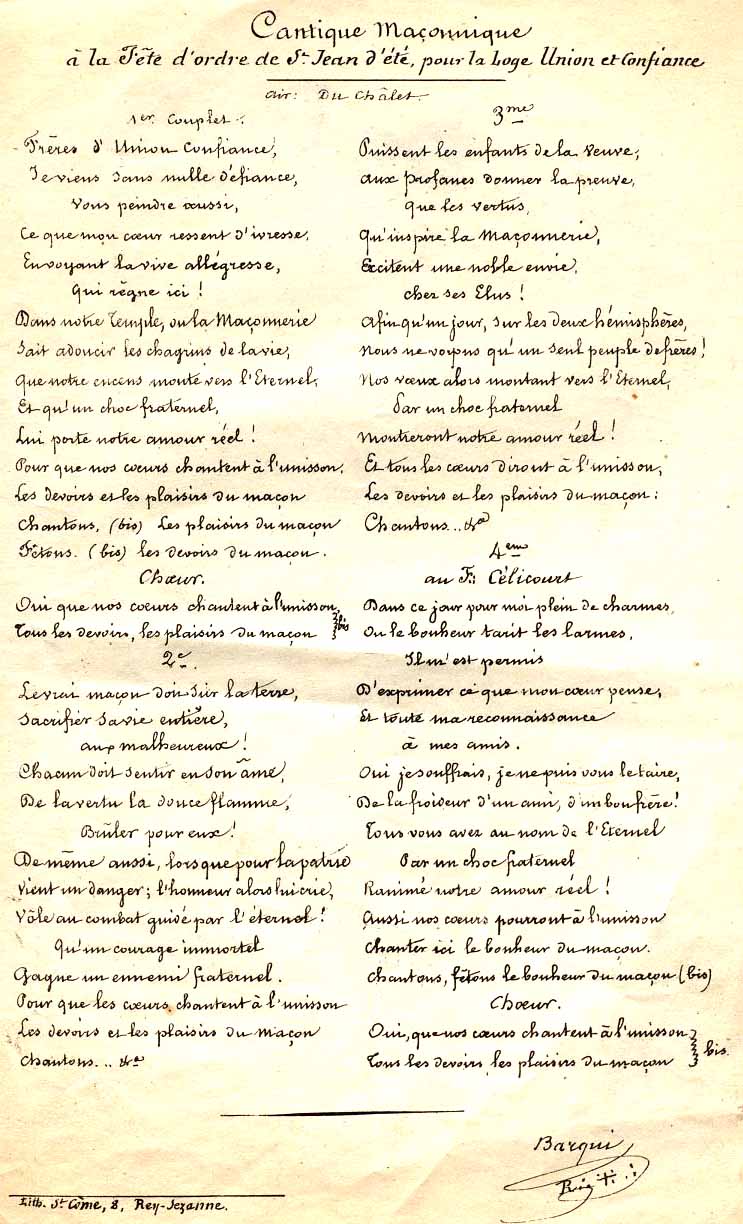 Cantique Maçonnique
à la Fête d'ordre de St Jean d'été, pour la Loge Union et Confiance
Air: Du Châlet.
1er Couplet.
Frères d'Union Confiance,
Je viens sans nulle défiance,
Vous peindre aussi,
Ce que mon cœur ressent d'ivresse.
En voyant la vive allégresse,
Qui règne ici !
Dans notre Temple, ou la Maçonnerie
Sait adoucir les chagrins de la vie,
Que notre encens monte vers l'Eternel,
Et qu'un choc fraternel,
Lui porte notre amour réel !
Pour que nos cœurs chantent à l'unisson.
Les devoirs et les plaisirs du maçon
Chantons, (bis) Les plaisirs du maçon
Fêtons. (bis) les devoirs du maçon.
Chœur.
Oui que nos cœurs chantent à l'unisson,
Tous les devoirs, les plaisirs du maçon } bis
2e
Le vrai maçon doit sur la terre,
Sacrifier sa vie entière,
aux malheureux !
Chacun doit sentir en son âme,
De la vertu la douce flamme,
Brûler pour eux !
De même aussi, lorsque pour la patrie
Vient un danger; l'honneur alors lui crie,
Vôle au combat guidé par l'éternel !
Qu'un courage immortel
Gagne un ennemi fraternel.
Pour que les cœurs chantent à l'unisson
Les devoirs et les plaisirs du maçon
Chantons... &a
3me
Puissent les enfants de la Veuve,
aux profanes donner la preuve,
que les vertus,
Qu'inspire la Maçonnerie,
Excitent une noble envie,
chez ses Elus !
Afin qu'un jour, sur les deux hémisphères,
Nous ne voyons qu'un seul peuple de frères !
Nos vœux alors montant vers l'Eternel,
Par un choc fraternel
Montreront notre amour réel !
Et tous les cœurs diront à l'unisson,
Les devoirs et les plaisirs du maçon :
Chantons... &a
4em
au F∴ Célicourt
Dans ce jour pour moi plein de charmes,
Ou le bonheur tarit les larmes,
Il m'est permis
D'exprimer ce que mon cœur pense,
Et toute ma reconnaissance
à mes amis.
Oui je souffrais, je ne puis vous le taire,
De la froideur d'un ami, d'un bon frère !
Tous vous avez au nom de l'Eternel
Par un choc fraternel
Ranimé notre amour réel !
Aussi nos cœurs pourront à l'unisson
Chanter ici le bonheur du maçon.
Chantons, fêtons le bonheur du maçon (bis)
Chœur.
Oui, que nos cœurs chantent à l'unisson
Tous les devoirs, les plaisirs du maçon } bis.
Barqui
Lith. St Côme, 8, Rey-Sezanne.